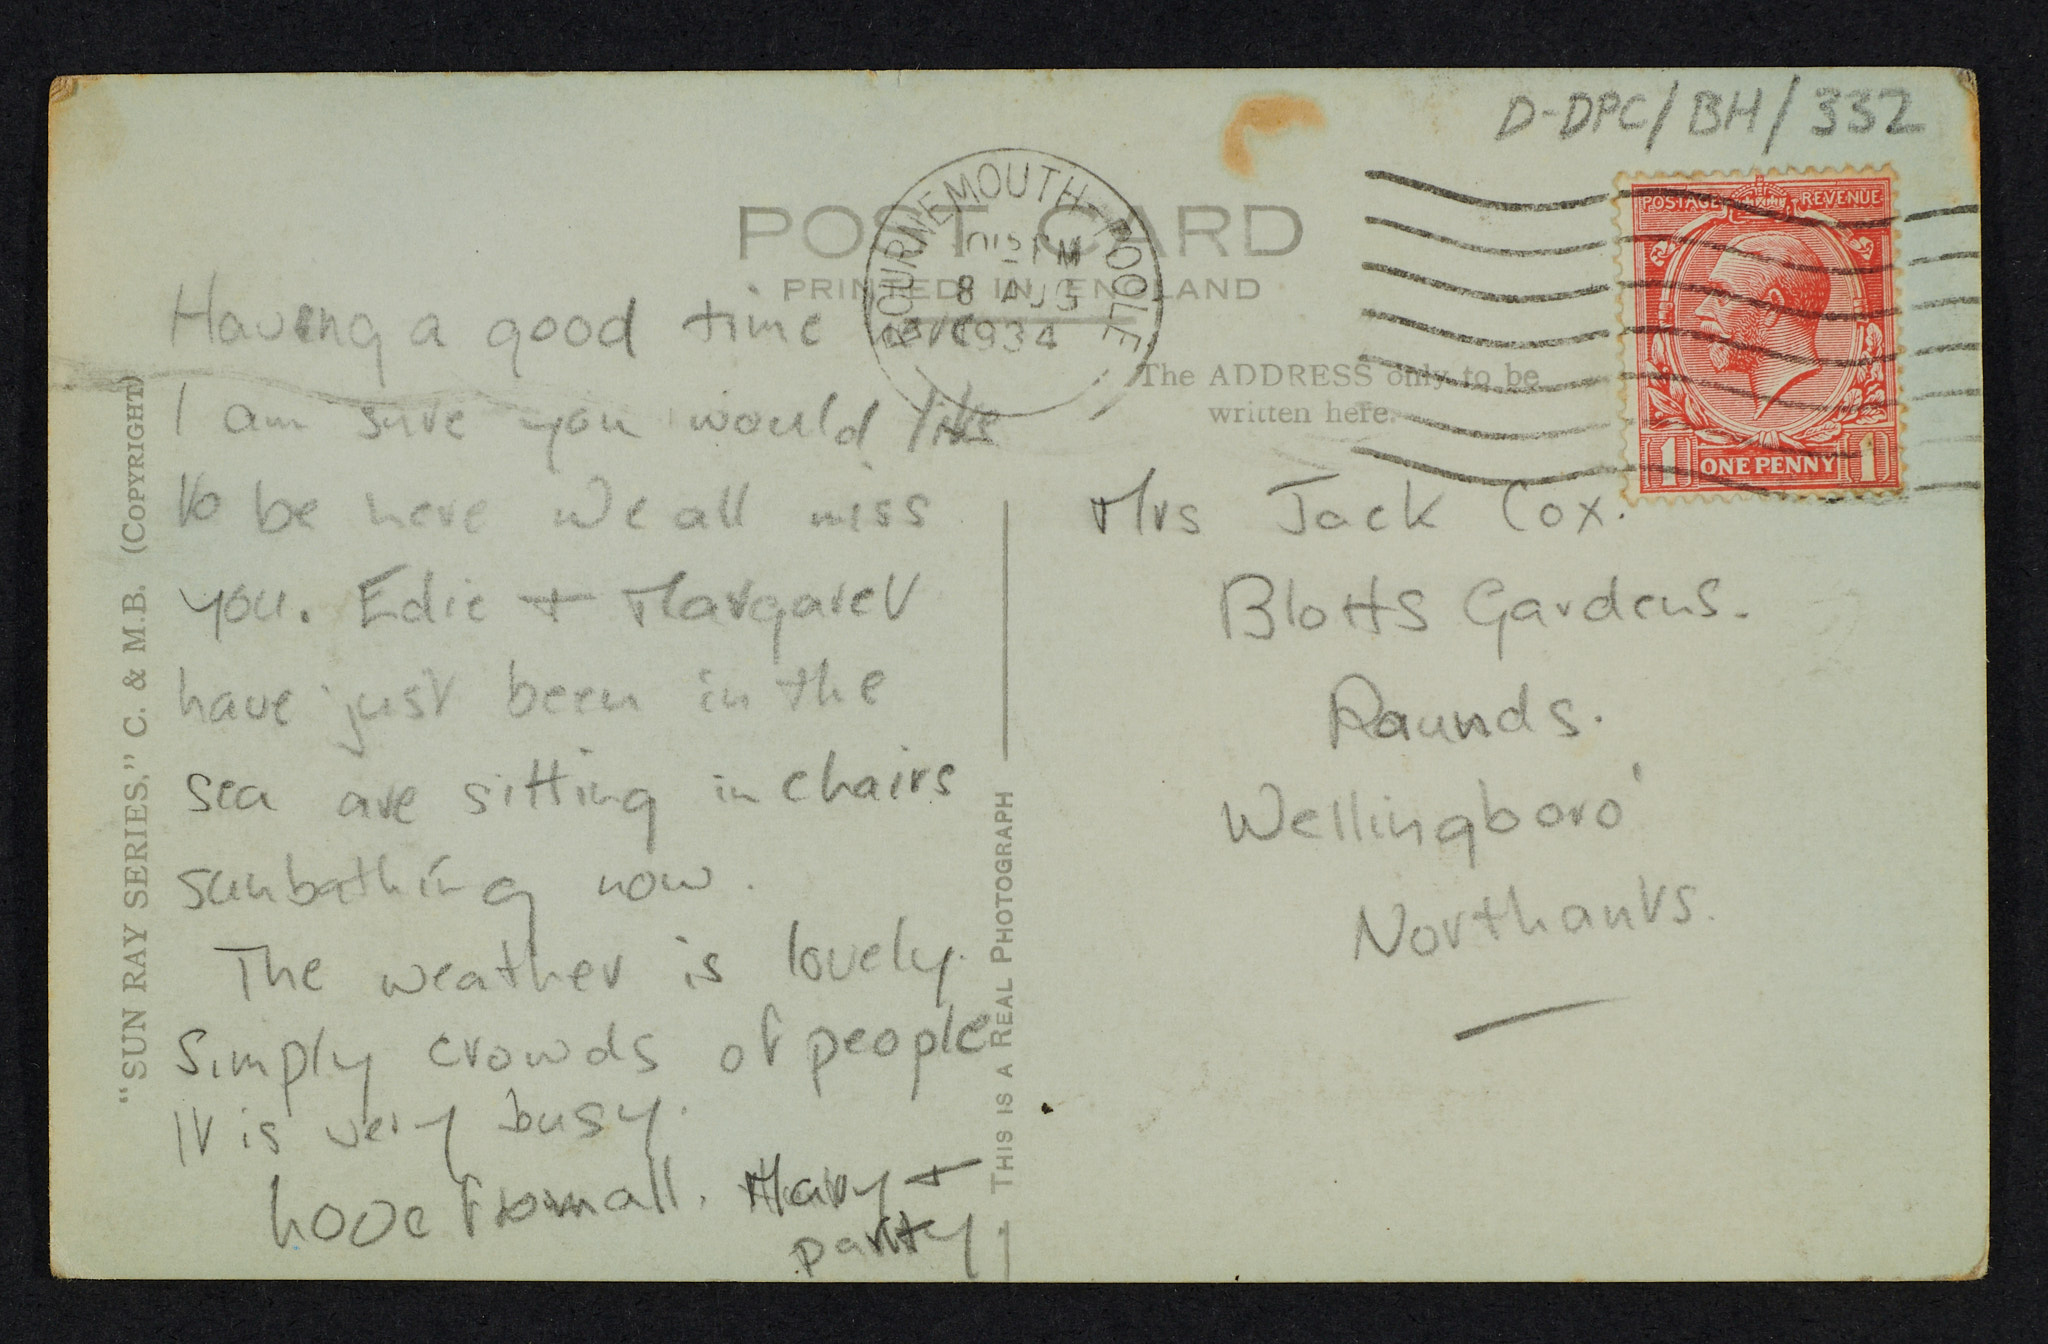 D-DPC/BH/332
POST CARD
PRINTED IN ENGLAND
BOURNEMOUTH-POOLE
PM
8 AUG
1934
POSTAGE REVENUE
1 ONE PENNY 1
The ADDRESS only to be
written here.
Having a good time here
I am sure you would like
to be here We all miss
you. Edie + Margaret
have just been in the
sea are sitting in chairs
sunbathing now.
The weather is lovely.
Simply crowds of people
It is very busy.
Love from all. Mary +
party.
Mrs Jack Cox.
Blotts Gardens.
Raunds.
Wellingboro'
Northants.
"SUN RAY SERIES." C. & M.B. (COPYRIGHT)
THIS IS A REAL PHOTOGRAPH